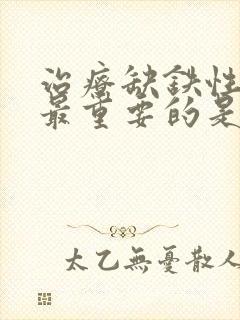 治療缺鉄性
最重要的是
太乙無憂散人